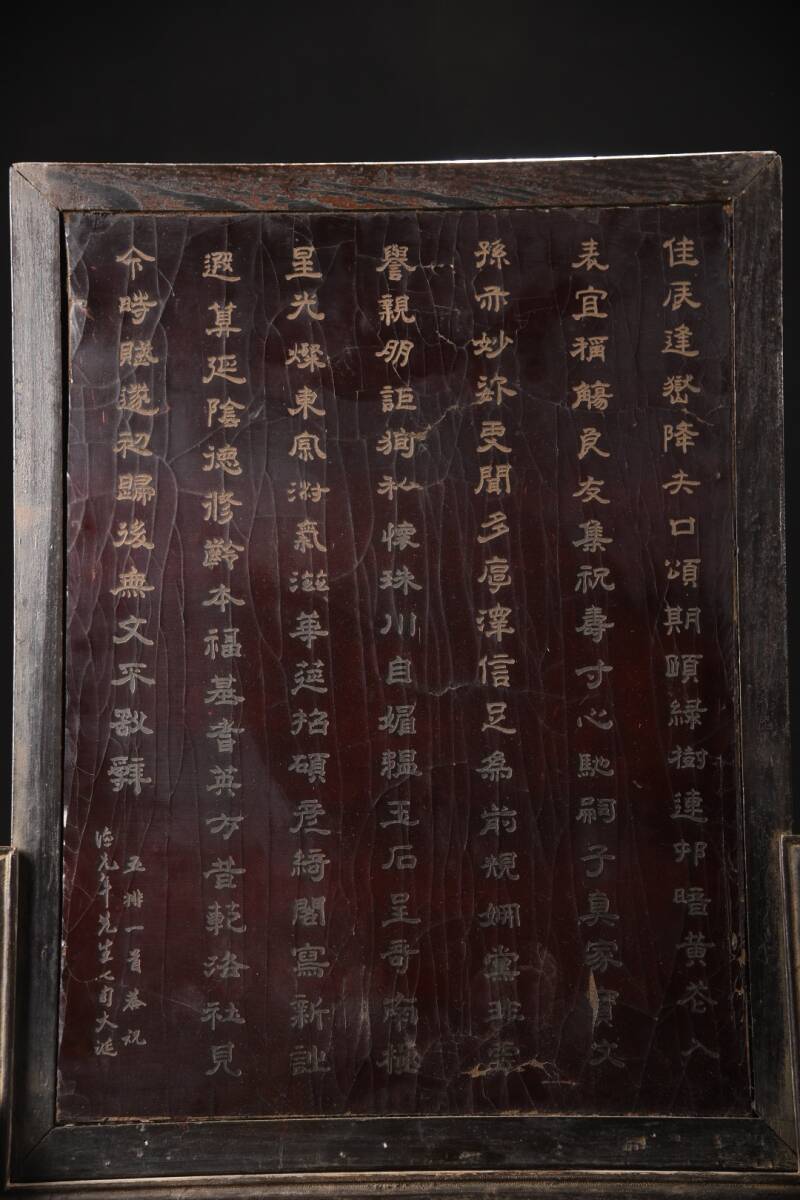 佳辰逢嶽降矢口頌期頤綠樹連邨暗黃花入
麥宜稱觴良友集祝壽寸心馳嗣子真家寶文
孫亦妙姿更聞多厚澤信足為前規姻黨非虛
譽親朋詎獨私懷珠川自媚韞玉石呈奇南極
星光燦東窗淑氣滋華筵招碩彥綺閣寫新詩
遐算延陰德修齡本福基耆英方昔範洛社見
今時賦遂初歸後無文采敢辭
五排一首恭祝
年先生七旬大誕